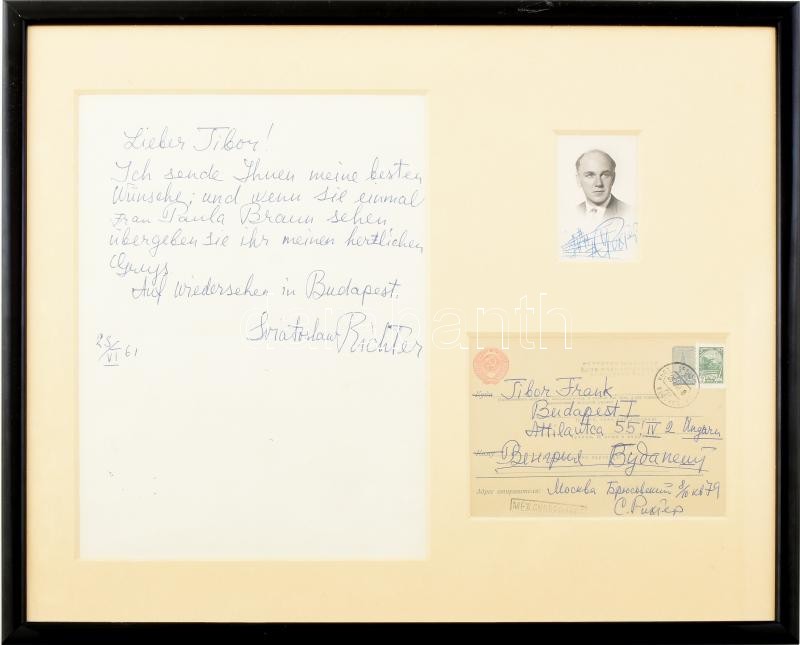 Lieber Tibor!
Ich sende Ihnen meine besten
Wünsche; und wenn sie einmal
Frau Paula Braun sehen
übergeben sie ihr meinen hertlichen
Gruss
Auf wiedersehen in Budapest.
Sviatoslaw Richter
25/VI 61
Куда Tibor Frank
Budapest I
Attilautca 55 IV 2 Ungarn
Кому
Венгрия Будапешт
Адрес отправителя: Москва Брюсовский 8/10 кв 79
С. Рихтер